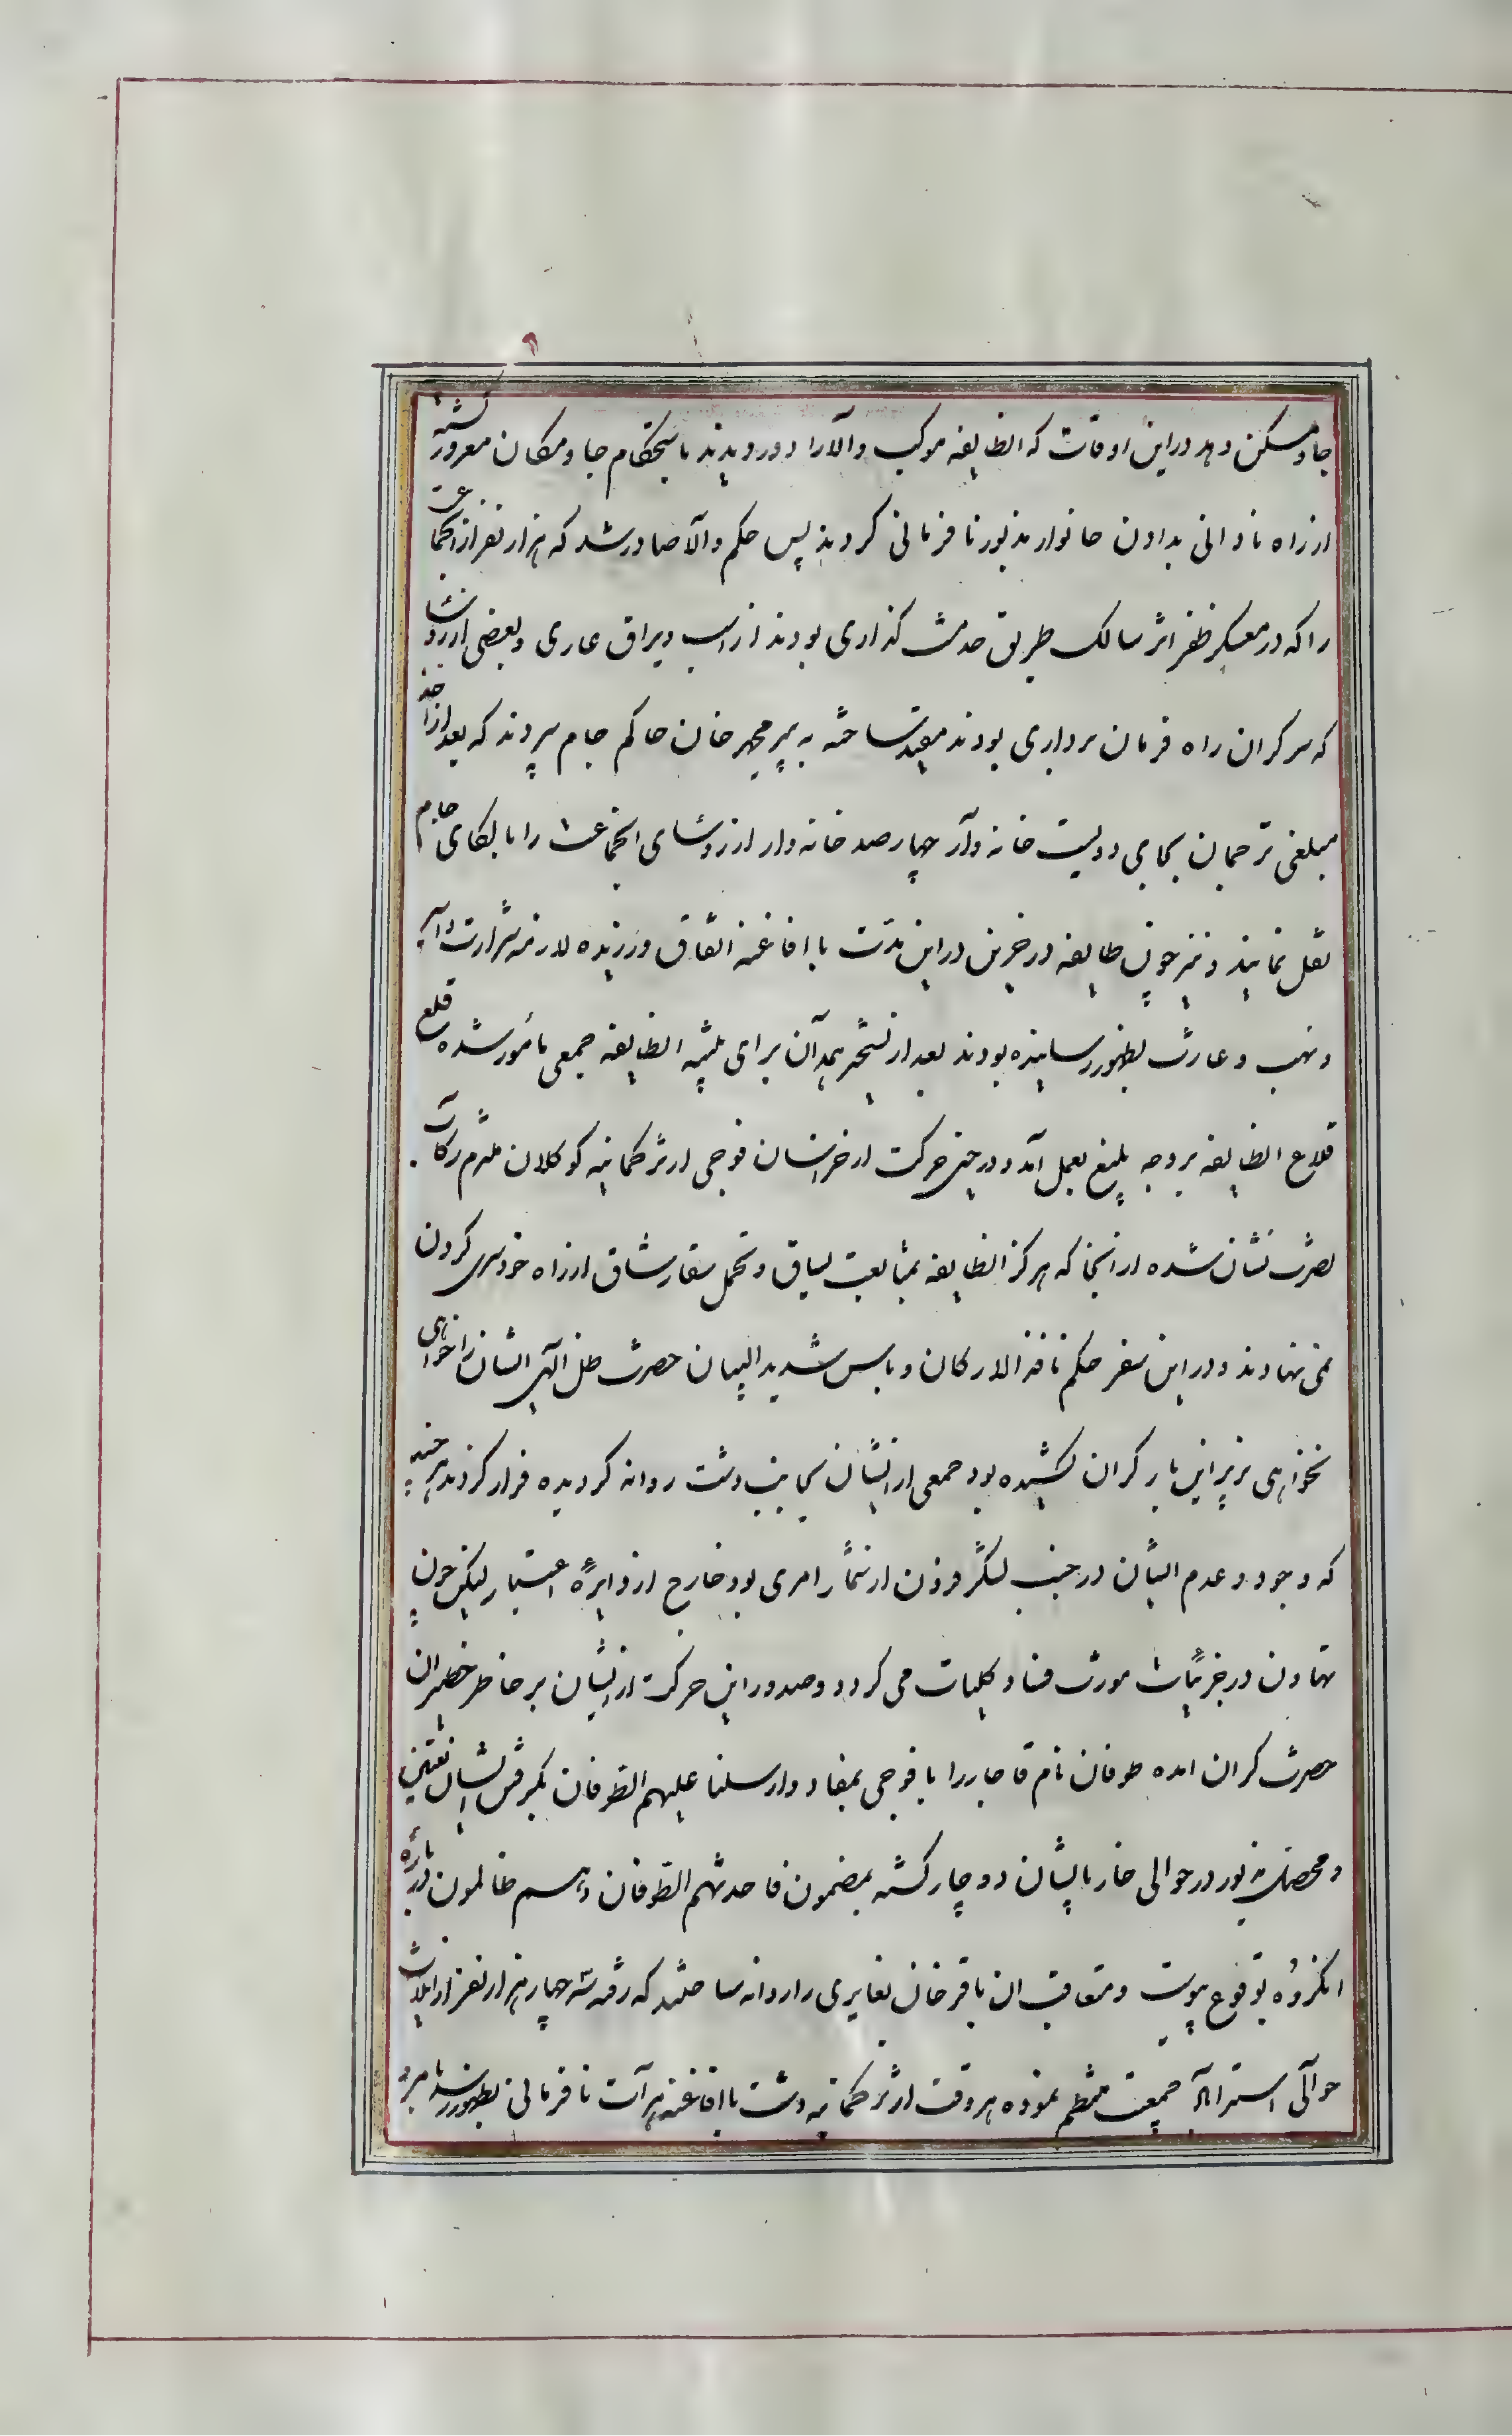 جا و مسکن دهد در این اوقات که انطایفه موکب والا را دور دیدند باستحکام جا و مکان مغرور گشته
از راه نادانی بدادن خانوار مذبور نافرمانی کردند پس حکم والا صادر شد که هزار نفر از انجماعت
را که در معسکر ظفر اثر سالک طریق خدمت گذاری بودند از اسب و یراق عاری و بعضی از روسا
که سرکران راه فرمان برداری بودند مقید ساخته به پیر محمد خان حاکم جام سپردند که بعد از اخذ
مبلغی ترجمان بجای دویست خانه وار چهار صد خانه وار از روسای انجماعت را بالکای جام
نقل نمایند و نیز چون طایفه درجزین در این مدت با افاغنه اتفاق ورزیده لازمه شرارت و اسر
و نهب و غارت بظهور رسانیده بودند بعد از تسخیر همدان برای تنبیه انطایفه جمعی مأمور شده قلع
قلاع انطایفه بر وجه بلیغ بعمل آمد و در حین حرکت از خراسان فوجی از ترکمانیه کوکلان ملتزم رکاب
نصرت نشان شده از انجا که هرگز انطایفه بمتابعت یساق و تحمل سفار شاق از راه خودسری کردن
نمی نهادند و در این سفر حکم نافذ الارکان و باس شدید البنیان حضرت ظل الهی ایشان را خواهی
نخواهی بزیر این بار گران کشیده بود جمعی از ایشان بجانب دشت روانه کردیده فرار کردند هر چند
که وجود و عدم ایشان در جنب لشکر فزون از شمار امری بود خارج از دایرهٔ اعتبار لیکن چون
تهاون در جزئیات مورث فساد کلیات می کردد و صدور این حرکت از ایشان بر خاطر خطیر ان
حضرت گران امده طوفان نام قاجار را با فوجی بمفاد و ارسلنا علیهم الطوفان بگرفتن ایشان تعیین
و محصل مذبور در حوالی خار بایشان دوچار کشته بمضمون فاخذتهم الطوفان و هم ظالمون در بارهٔ
انکروه بوقوع پیوست و متعاقب ان باقر خان بغایری را روانه ساختند که رفته چهار هزار نفر از ایلات
حوالی استراباد جمعیت منظم نموده هر وقت از ترکمانیه دشت یا افاغنه هرات نافرمانی بظهور رسد